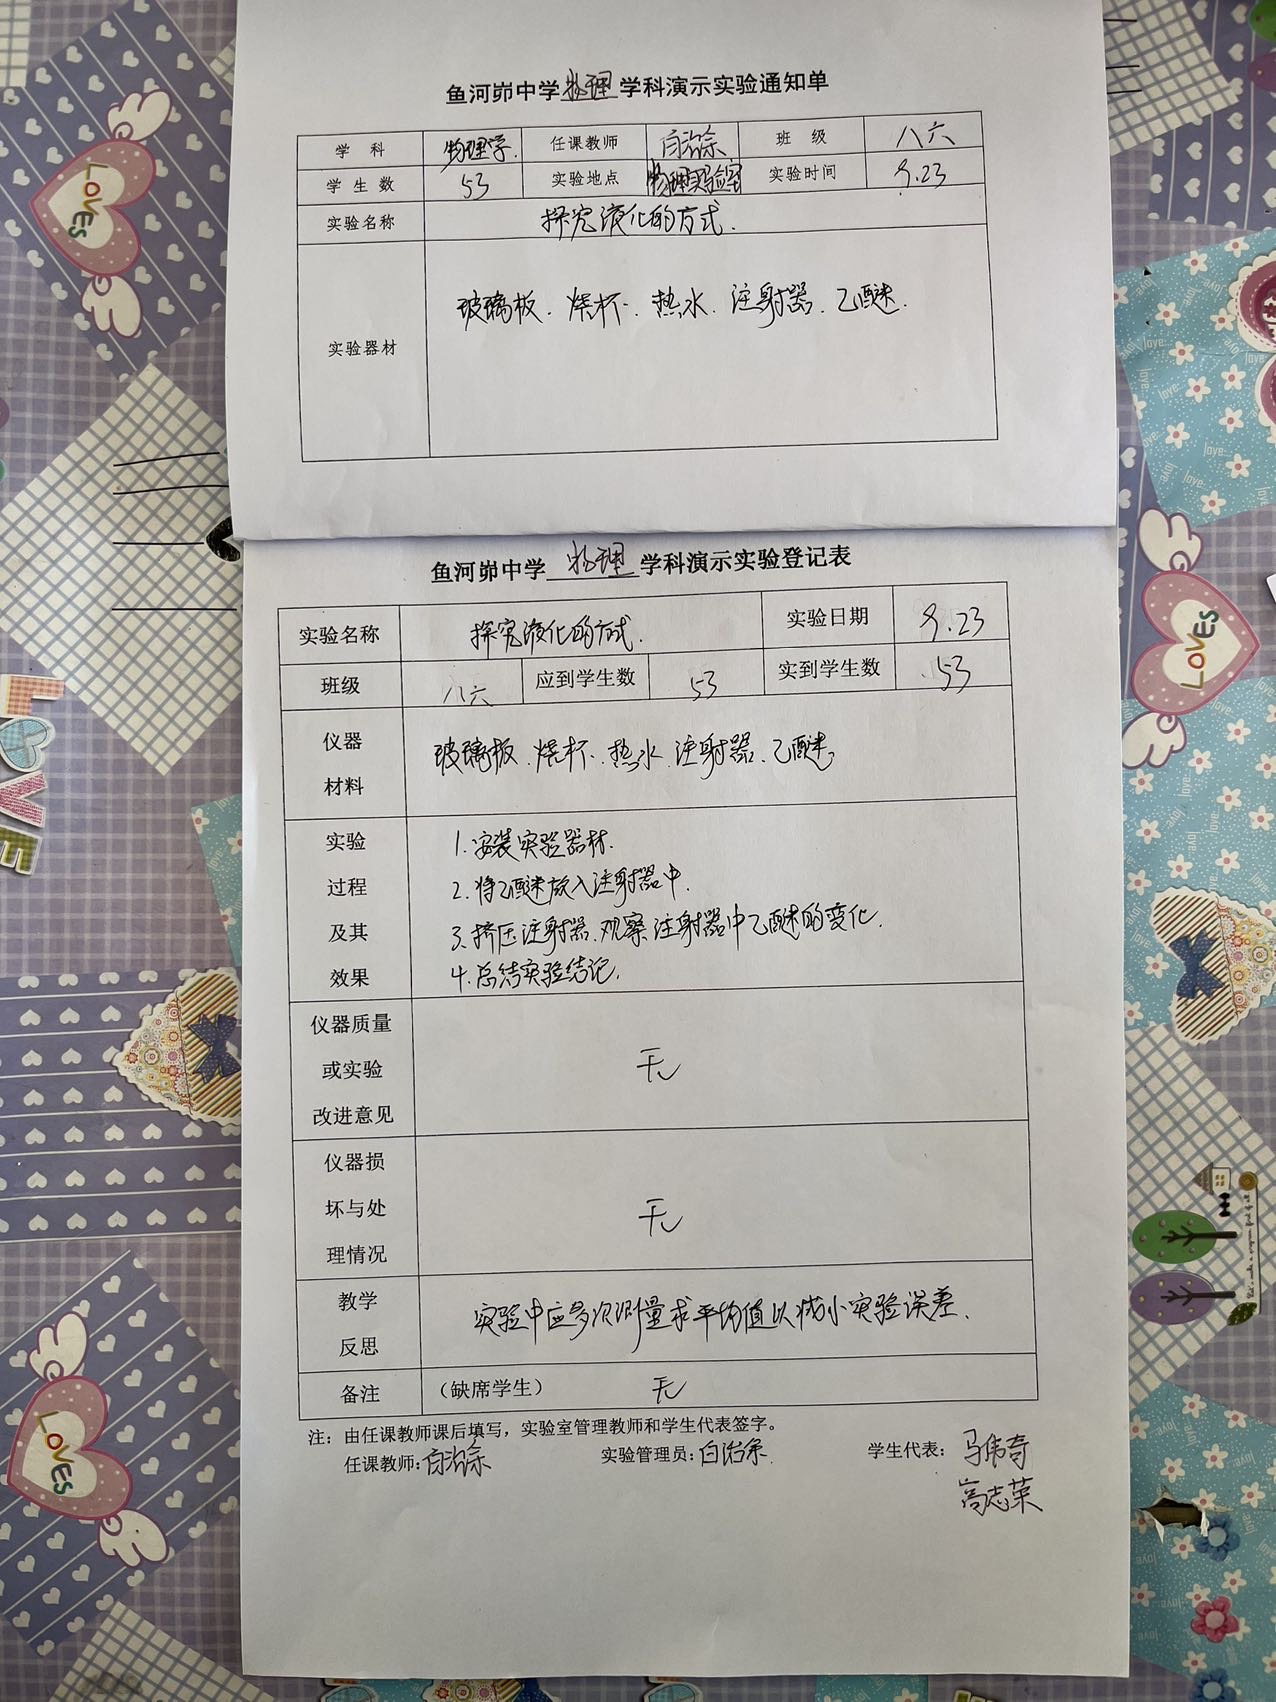 鱼河峁中学物理学科演示实验通知单
学 科 物理学. 任课教师 白治余 班 级 八六
学 生 数 53 实验地点 物理实验室 实验时间 9.23
实验名称 探究液化的方式.
实验器材 玻璃板. 烧杯. 热水. 注射器. 乙醚.
鱼河峁中学 物理 学科演示实验登记表
实验名称 探究液化的方式. 实验日期 9.23
班级 八六 应到学生数 53 实到学生数 53
仪器
材料
玻璃板、烧杯、热水、注射器、乙醚。
实验
过程
及其
效果
1.安装实验器材.
2.将乙醚放入注射器中.
3.挤压注射器、观察注射器中乙醚的变化.
4.总结实验结记.
仪器质量
或实验
改进意见
无
仪器损
坏与处
理情况
无
教学
反思
实验中应多次测量求平均值以减小实验误差.
备注 （缺席学生） 无
注：由任课教师课后填写，实验室管理教师和学生代表签字。
任课教师：白治余 实验管理员：白治余. 学生代表： 马伟奇
高志荣
LOVES
LOVES
LOVES
LOVE